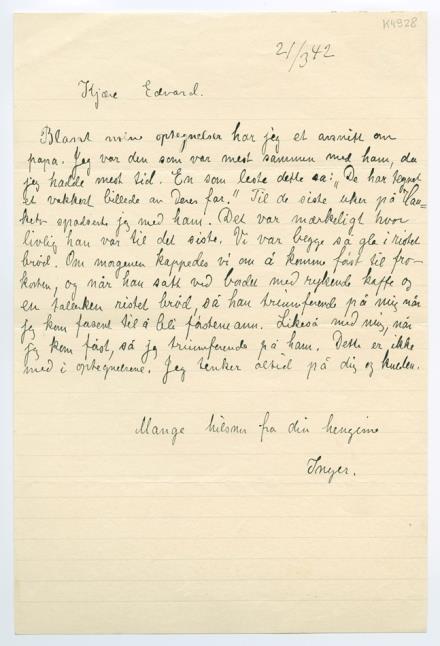 K4928
21/3 42
Kjære Edvard.
Blandt mine optegnelser har jeg et avsnitt om
papa. Jeg var den som var mest sammen med ham, da
jeg hadde mest tid. En som leste dette sa: „De har tegnet
et vakkert billede av Deres far." Til de siste uker på
spaserte jeg med ham. Det var mærkeligt hvor
livlig han var til det siste. Vi var begge så gla i ristet
brød. Om morgenen kappedes vi om å komme først til fro-
kosten, og når han satt ved bordet med rykende kaffe og
en talerken ristet brød, så han triumferende på mig når
jeg kom farende til å bli førstemann. Likeså med mig, når
jeg kom først, så jeg triumferende på ham. Dette er ikke
med i optegnelsene. Jeg tenker altid på dig og
Mange hilsner fra din hengivne
Inger.